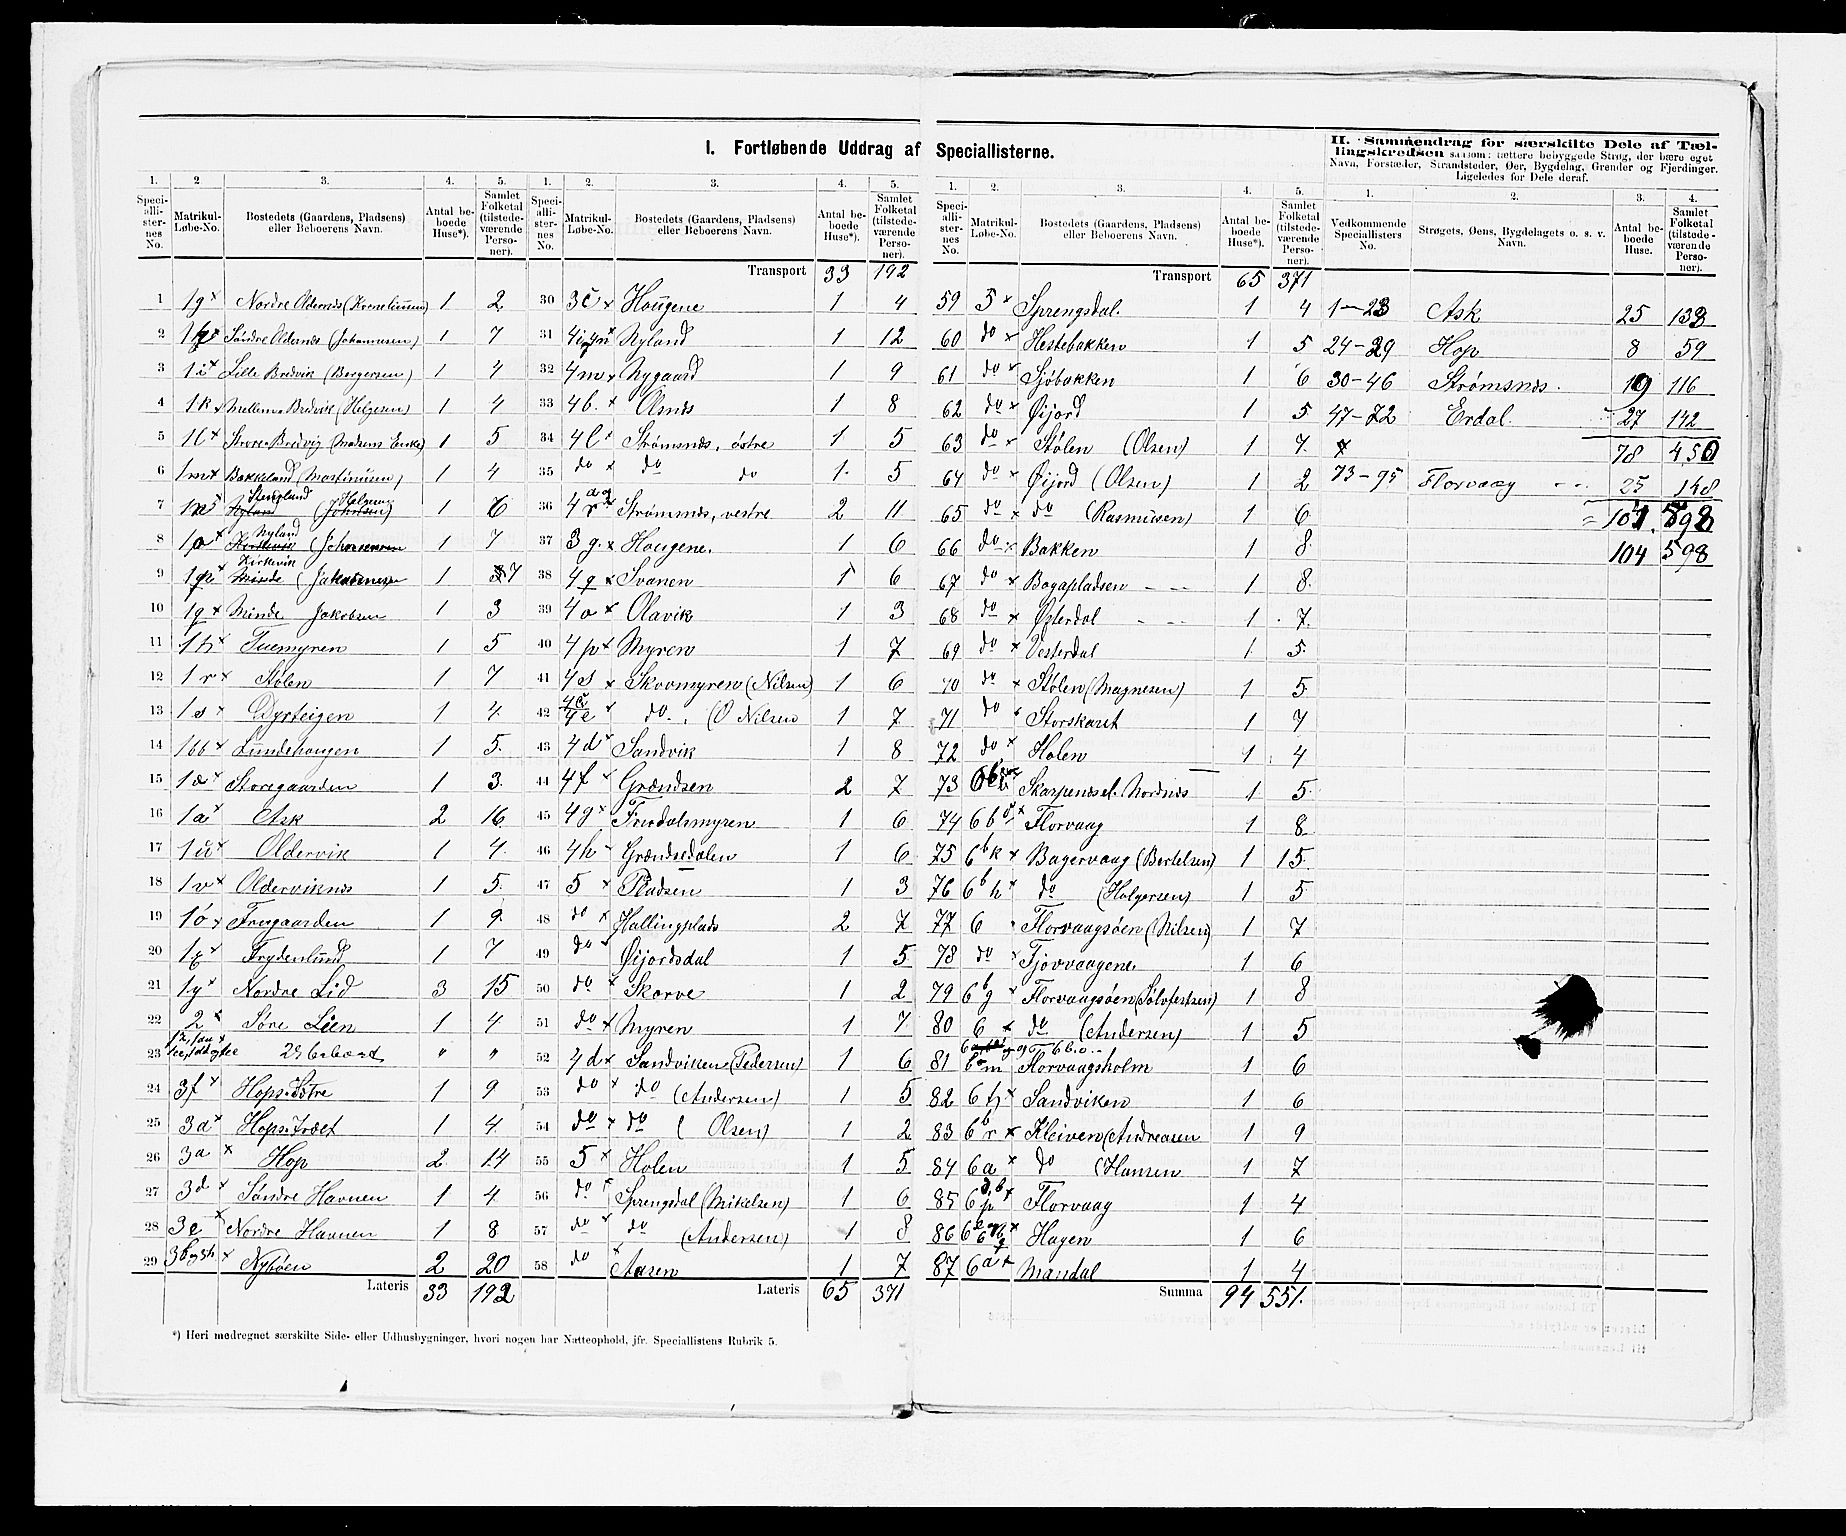 I. Fortløbende Uddrag af Speciallisterne.
II. Sammendrag for særskilte Dele af Tællingskredsen saasom: tættere bebyggede Strøg, der bære eget Navn, Forstæder, Strandsteder, Øer, Bygdelag, Grender og Fjerdinger. Ligeledes for Dele deraf.
1. 2. 3. 4. 5. 1. 2. 3. 4. 5. 1. 2. 3. 4. 5. 1. 2. 3. 4.
Speciallisternes No. Matrikul-Løbe-No. Bostedets (Gaardens, Pladsens) eller Beboerens Navn. Antal beboede Huse*). Samlet Folketal (tilstedeværende Personer).
Speciallisternes No. Matrikul-Løbe-No. Bostedets (Gaardens, Pladsens) eller Beboerens Navn. Antal beboede Huse*). Samlet Folketal (tilstedeværende Personer).
Speciallisternes No. Matrikul-Løbe-No. Bostedets (Gaardens, Pladsens) eller Beboerens Navn. Antal beboede Huse*). Samlet Folketal (tilstedeværende Personer).
Vedkommende Speciallisters No. Strøgets, Øens, Bygdelagets o. s. v. Navn. Antal beboede Huse. Samlet Folketal (tilstedeværende Personer).
1 1g x Nordre Oldernæs (Korneliussen) 1 2
2 Søndre Oldernæs (Johannesen) 1 7
3 1i x Lille Bredvik (Bergersen) 1 4
4 1k x Mellem Bredvik (Helgesen) 1 4
5 1l x Store Bredvig (Madsens Enke) 1 5
6 1m x Bakkeland (Martinusen) 1 4
7 Stengland 1 6
8 1o x Nyland 1 7
9 Kirkevik 1 7
10 1q x Minde Jakobsen 1 3
11 Tuemyren 1 5
12 1r x Stølen 1 7
13 1s x Dyrteigen 1 4
14 1bb x Lundehougen 1 5
15 1æ x Storegaarden 1 3
16 1a x Ask 2 16
17 1u x Oldervik 1 4
18 1v x Olderviknæs 1 5
19 1ø x Fregaarden 1 9
20 1x x Frydenlund 1 7
21 1y x Nordre Lid 3 15
22 2 x Søre Lien 1 4
23 Ubeboet " "
24 3f x Hops. Østre 1 9
25 3a x Hops. Træet 1 4
26 3a x Hop 2 14
27 3d x Søndre Havnen 1 4
28 3e x Nordre Havnen 1 8
29 3b og 3h x Nybøen 2 20
Lateris 33 192
Transport 33 192
30 3c x Hougene 1 4
31 Nyland 1 12
32 4m x Nygaard 1 9
33 4b. x Olsnæs 1 8
34 4l x Strømsnæs, østre 1 5
35 do x do do 1 5
36 Strømsnæs, vestre 2 11
37 3g. x Hougene. 1 6
38 4q x Svanen 1 6
39 4o x Olavik 1 3
40 4p x Myren 1 7
41 4s x Skovmyren (Nilsen) 1 6
42 4e x do. (O Nilsen 1 7
43 4d x Sandvik 1 8
44 4f x Grændsen 2 7
45 4g x Fredalsmyren 1 6
46 4h Grændsedalen 1 6
47 5 x Pladsen 1 3
48 do x Hallingplads 2 7
49 do Øijordsdal 1 5
50 do x Skorve 1 2
51 do x Myren 1 7
52 4d x Sandviken (Pedersen) 1 6
53 do x do (Andersen) 1 5
54 do x do (Olsen) 1 2
55 5 x Holen 1 5
56 do x Sprengsdal (Mikelsen) 1 6
57 do x do (Andersen) 1 8
58 do x Aasen 1 7
Lateris 65 371
Transport 65 371
59 5 x Sprengsdal. 1 4
60 do x Hestebakken 1 5
61 do x Sjöbakken 1 6
62 do x Øijord 1 5
63 do x Stølen (Olsen) 1 7.
64 do x Øijord (Olsen) 1 2
65 do x do (Rasmusen) 1 6
66 do x Bakken 1 8.
67 do x Bogapladsen 1 8.
68 do x Østerdal 1 7.
69 do x Vesterdal 1 5.
70 do x Stølen (Magnesen) 1 5
71 do x Storskaret 1 7
72 do x Holen 1 4
73 Skarpenæs el. Nordnæs 1 5.
74 Florvaag 1 8
75 6b k x Bagervaag (Bertelsen) 1 15.
76 6b h x do (Holgersen) 1 5
77 6 Florvaagsøen (Nilsen) 1 7
78 do x Tjovvaagene. 1 6
79 6b g x Florvaagsøen (Sølvfestsen) 1 8
80 6 x do (Andersen) 1 5
81 Florvaagsholm 1 6
82 Sandviken 1 6
83 6b r x Kleiven (Andreasen 1 9
84 6a x do (Hansen 1 7
85 Florvaag 1 4
86 Hagen 1 6
87 Mandal 1 4
Summa 94 551.
1-23 Ask 25 138
24-29 Hop 8 59
30-46 Strømsnæs. 19 116
47-72 Erdal. 27 142
78 450
73-95 Florvaag 25 148
104 598
*) Heri medregnet særskilte Side- eller Udhusbygninger, hvori nogen har Natteophold, jfr. Speciallistens Rubrik 5.